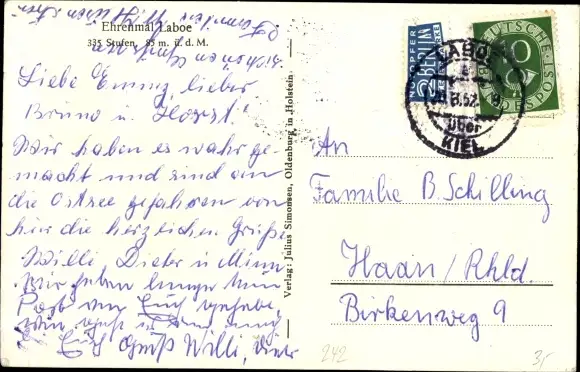 Ehrenmal Laboe
335 Stufen, 85 m. ü. d. M.
Liebe Emmy, lieber
Bruno u. Horst!
Wir haben es wahr ge-
macht und sind an
die Ostsee gefahren von
hier die herzlichen Grüße
Willi Dieter u Minna
Wir haben lange kein
Post von Euch gehabt,
wie geht
Euch Gruß Willi, Dieter
Verlag: Julius Simonsen, Oldenburg in Holstein
NOTOPFER
2 BERLIN
STEUERMARKE
DEUTSCHE
BUNDESPOST
10
LABOE
über
KIEL
An
Familie B. Schilling
Haan/Rhld.
Birkenweg 9
242
3,-